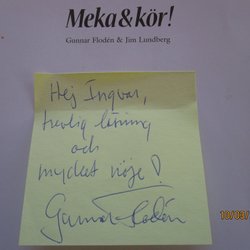 Meka & kör!
Gunnar Flodén & Jim Lundberg
Hej Ingvar,
trevlig läsning
och
mycket nöje!
Gunnar Flodén
10/03/